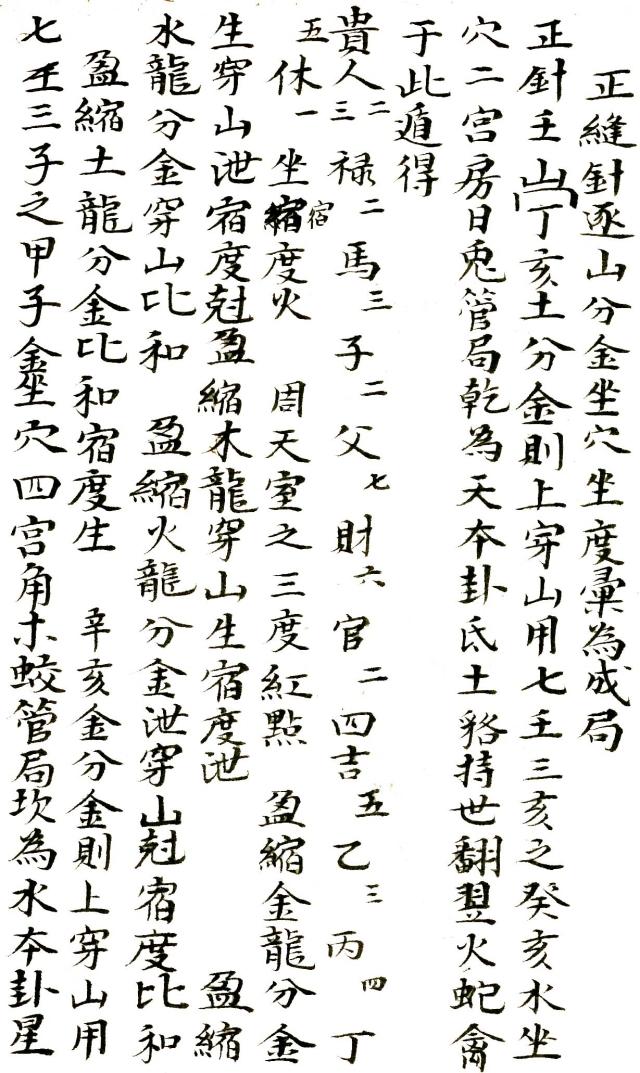 正縫針逐山分金坐穴坐度彙為成局
正針壬山丁亥土分金則上穿山用七壬三亥之癸亥水坐
穴二宮房日兎管局乾為天本卦氐土貉持世翻翌火蛇禽
于此遁得
貴人二三祿二馬三子二父七財六官二四吉五乙三丙四丁
五休一坐宿度火 周天室之三度紅點 盈縮金龍分金
生穿山泄宿度尅盈縮木龍穿山生宿度泄 盈縮
水龍分金穿山比和 盈縮火龍分金泄穿山尅宿度比和
盈縮土龍分金比和宿度生 辛亥金分金則上穿山用
七壬三子之甲子金坐穴四宮角木蛟管局坎為水本卦星